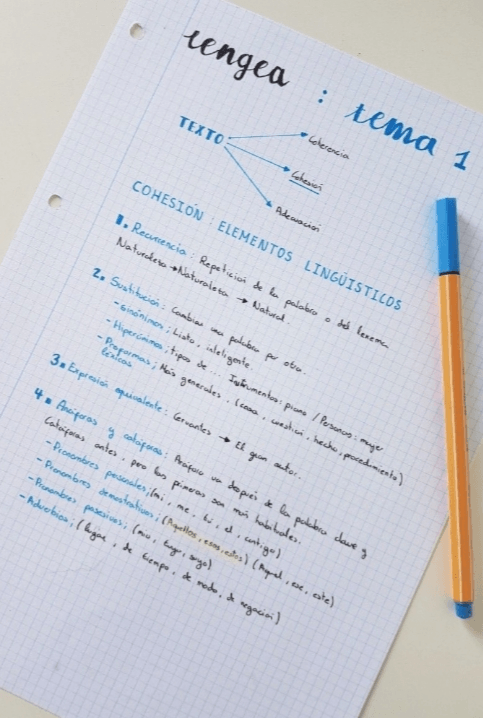 lengua : tema 1
TEXTO
Coherencia
Cohesión
Adecuación
COHESIÓN : ELEMENTOS LINGÜISTICOS
1. Recurrencia : Repetición de la palabra o del lexema
Naturaleza → Naturaleza → Natural.
2. Sustitución : Cambiar una palabra por otra.
- Sinónimos ; Listo, inteligente.
- Hiperónimos ; tipos de ... Instrumentos : piano / Persona : mujer
- Proformas ; Más generales. (cosa, cuestión, hecho, procedimiento)
léxicas
3. Expresión equivalente : Cervantes → El gran autor.
4. Anáforas y catáforas : Anáfora va después de la palabra clave y
Catáforas antes, pero las primeras son más habituales.
- Pronombres personales ; (mi, me, tu, el, contigo)
- Pronombres demostrativos ; (Aquellos, esos, estos) (Aquel, ese, este)
- Pronombres posesivos ; (mio, tuyo, suyo)
- Adverbios ; (lugar, de tiempo, de modo, de negación)